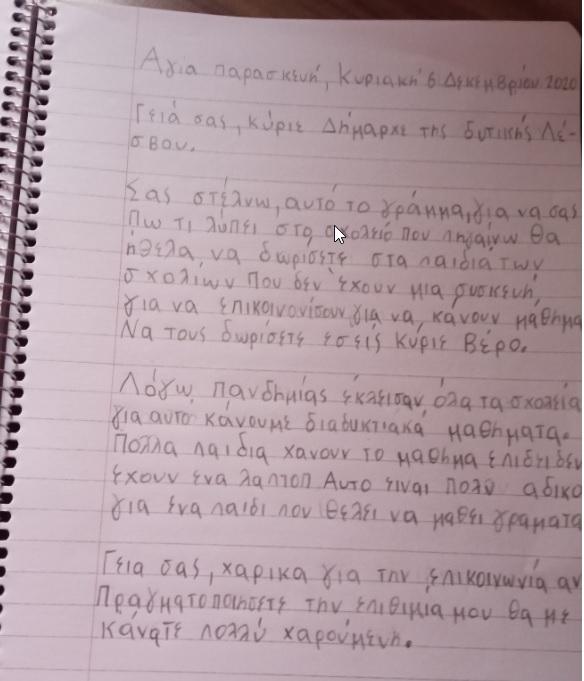 Αγια παρασκευή, Κυριακή 6 Δεκεμβρίου 2020
Γειά σας, κύριε Δήμαρχε της δυτικής Λέ-
σβου.
Σας στέλνω, αυτό το γράμμα, για να σας
πω τι λύπει στο σχολείο που πηγαίνω θα
ήθελα, να δωρίσετε στα παιδιά των
σχολίων που δεν έχουν μια συσκευή,
για να επικοινονίσουν για να, κάνουν μαθημα
Να τους δωρίσετε εσείς κύριε Βέρο.
Λόγω, πανδημίας έκλεισαν, όλα τα σχολεία
για αυτό κάνουμε διαδυκτιακά μαθηματα.
Πολλα παιδια χανουν το μαθημα επιδει δεν
έχουν ενα λαπτοπ Αυτο ειναι πολύ αδικο
για ένα παιδι που θέλει να μαθει γραματα
Γεια σας, χαρικα για την επικοινωνία αν
πραγματοποιησετε την επιθιμια μου θα με
κάνατε πολλύ χαρούμενη.